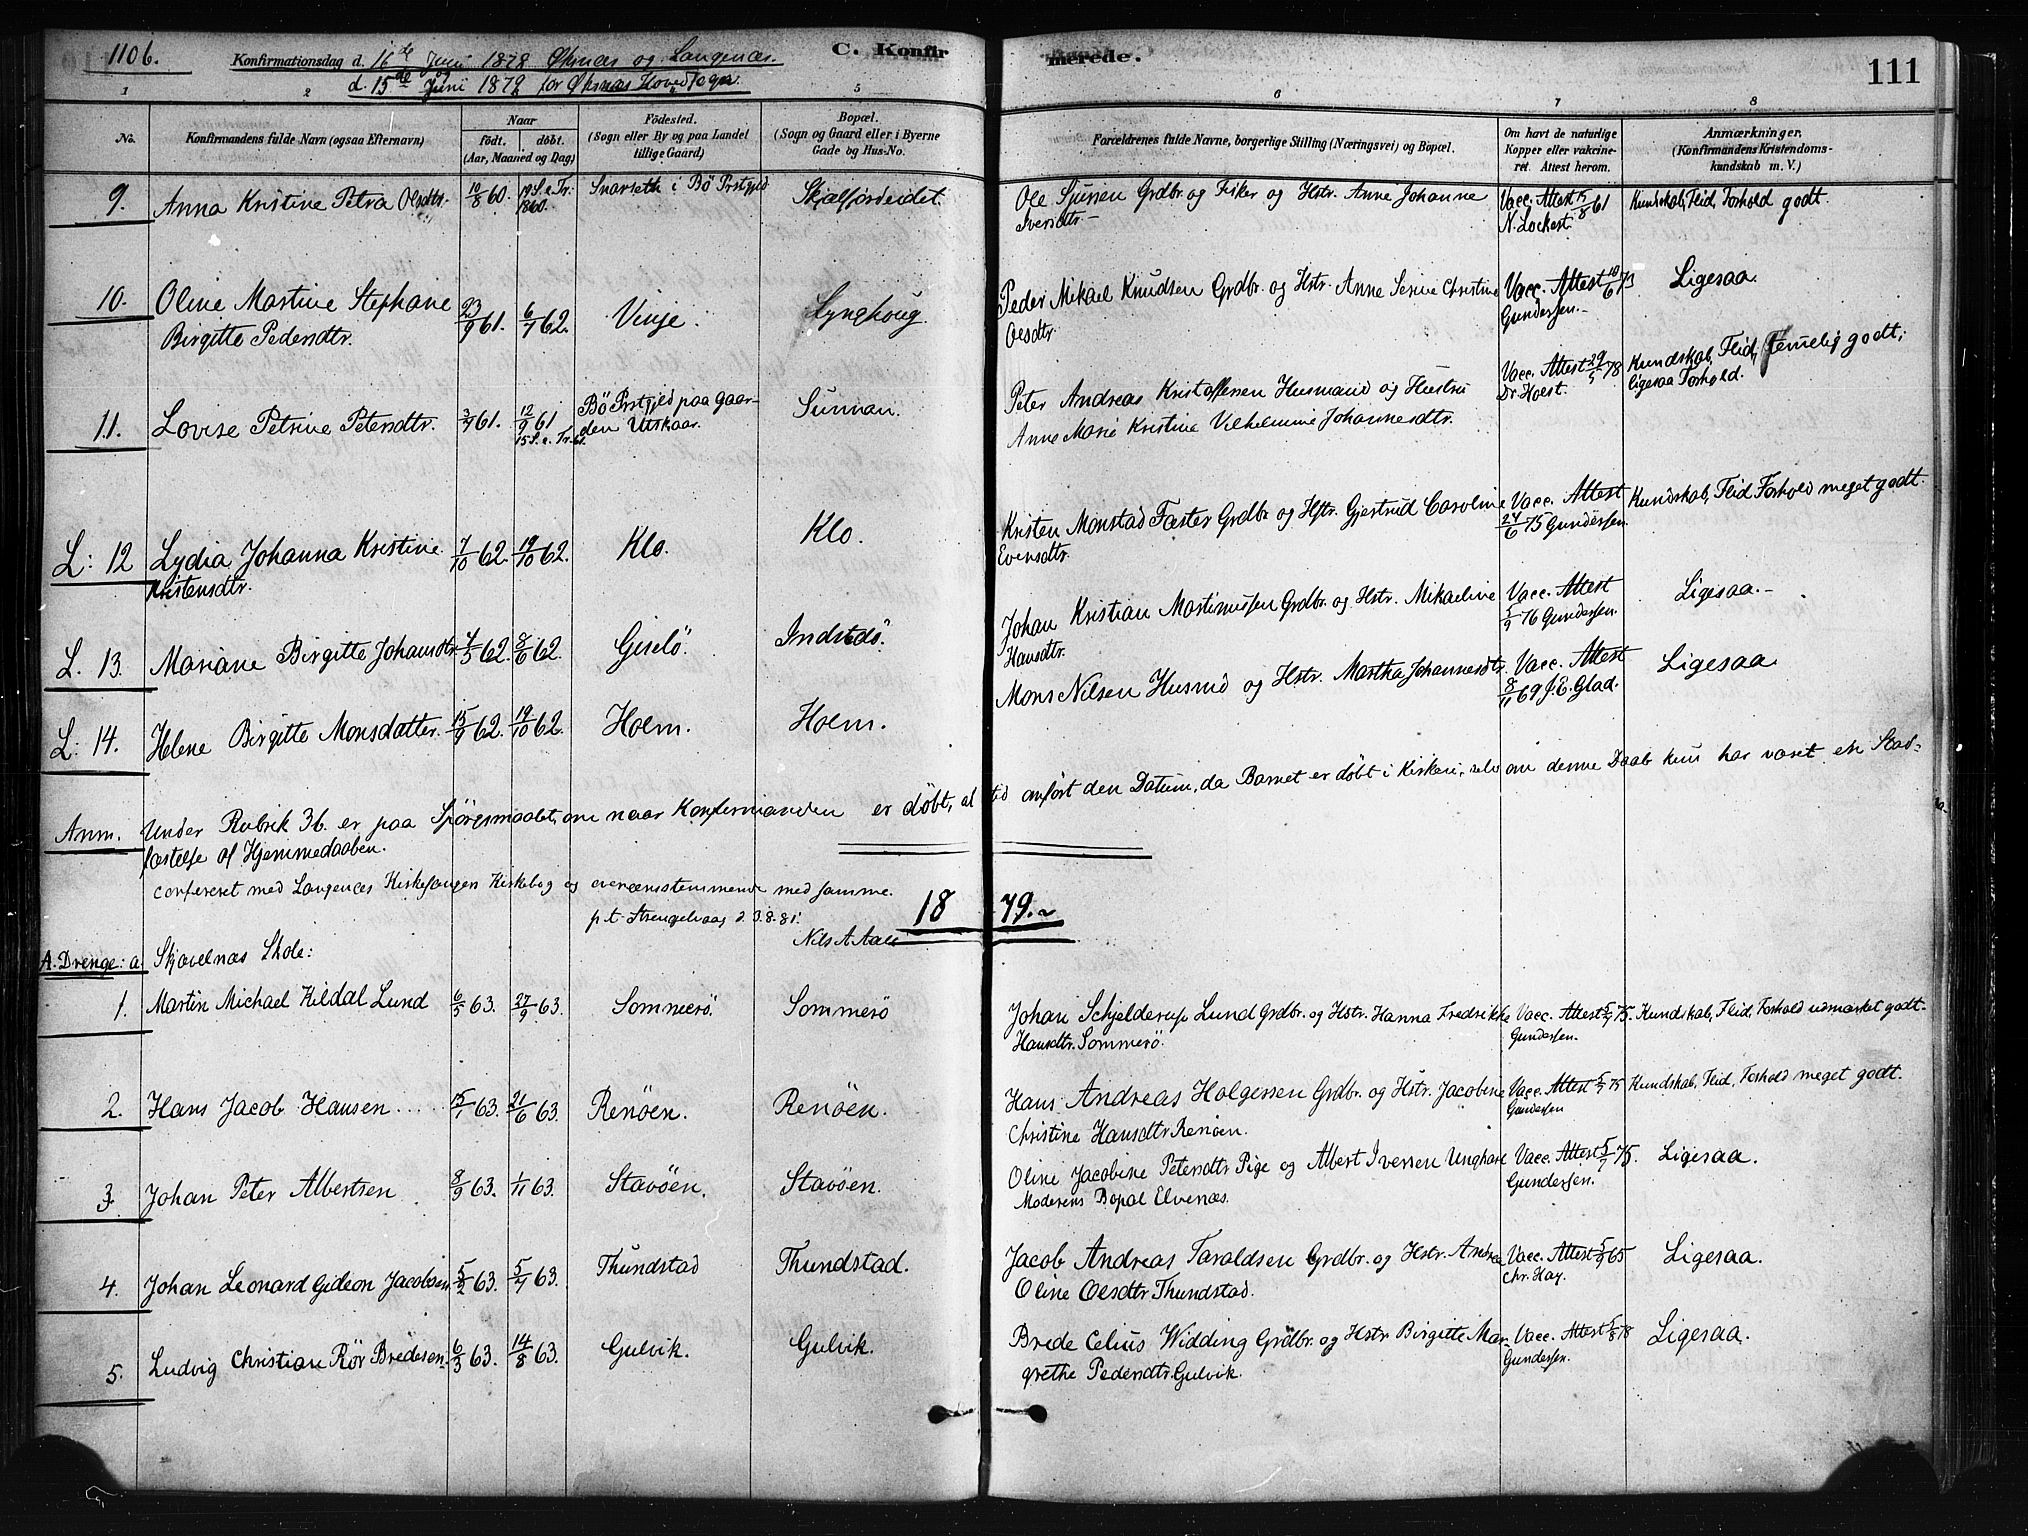 1106.
Konfirmationsdag d. 16de Juni 1878 Øksnæs og Langenæs.
d. 15de Juni 1879 for Øksnæs Hovedsogn.
C. Konfir
merede.
111
1 2 5 6 7 8
No.
Konfirmandens fulde Navn (ogsaa Efternavn)
Naar
födt. döbt.
(Aar, Maaned og Dag)
Födested.
(Sogn eller By og paa Landet
tillige Gaard)
Bopæl.
(Sogn og Gaard eller i Byerne
Gade og Hus-No.
Forældrenes fulde Navne, borgerlige Stilling (Næringsvei) og Bopæl.
Om havt de naturlige
Kopper eller vakcine-
ret. Attest herom.
Anmærkninger.
(Konfirmandens Kristendoms-
kundskab m. V.)
9. Anna Kristine Petra Olsdtr. 10/8 60. 19 S. e. Tr. 1860. Snarseth i Bö Prstgjd Skjælfjordeidet. Ole Sjursen Grdbr og Fisker og Hstr. Anne Johanne Vacc. Attest 15/8 61 Kundskab, Flid, Forhold godt.
Iversdtr N. Lockert.
10. Oline Martine Stephane 23/9 61. 6/7 62. Vinje. Lynghoug. Peder Mikael Knudsen Grdbr. og Hstr. Anne Serine Christine Vacc. Attest 10/6 73 Ligesaa.
Birgitte Pedersdtr. Olsdtr Gundersen.
11. Lovise Petrine Petersdtr. 3/7 61. 12/9 61 Bö Prstgjd paa Gaar- Sunnan. Peter Andreas Kristoffersen Husmand og Hustru Vacc. Attest 29/5 78 Kundskab, Flid, temelig godt;
15 S. e. Tr. 61. den Utskaar. Anne Marie Kristine Vilhelmine Johannesdtr. Dr Hoest. ligesaa Forhold.
L: 12 Lydia Johanna Kristine 7/10 62. 19/10 62. Klo. Klo. Kristen Monstad Fæster Grdbr og Hstr. Gjertrud Caroline Vacc. Attest Kundskab, Flid Forhold meget godt.
Kristensdtr. Evensdtr. 24/6 75 Gundersen.
L. 13. Mariane Birgitte Johansdtr. 4/5 62. 8/6 62. Giselö Indstedö. Johan Kristian Martinussen Grdbr. og Hstr. Mikaeline Vacc. Attest Ligesaa.
Hansdtr. 5/9 76 Gundersen.
L: 14. Helene Birgitte Monsdatter. 15/9 62. 19/10 62. Holm. Holm. Mons Nilsen Husmd og Hstr. Martha Johannesdtr. Vacc. Attest Ligesaa.
8/11 69 J. E. Glad.
Anm. Under Rubrik 3b. er paa Spörgsmaalet, om naar Konfirmanden er döbt, altid anfört den Datum, da Barnet er döbt i Kirken, selv om denne Daab kun har været en Stad-
fæstelse af Hjemmedaaben.
confereret med Langenæs Kirkesangers Kirkebog og overensstemmende med samme.
p. t. Strengelvaag d. 3.8.81.
Nils A Aall
1879.
A. Drenge: a. Skjævelnæs Skole:
1. Martin Michael Kildal Lund 6/5 63. 27/9 63. Sommerö. Sommerö Johan Schjelderup Lund Grdbr. og Hstr. Hanna Fredrikke Vacc. Attest 5/7 75. Kundskab, Flid, Forhold udmærket godt.
Hansdtr. Sommerö. Gundersen.
2. Hans Jacob Hansen 15/1 63. 21/6 63. Renöen. Renöen. Hans Andreas Holgersen Grdbr. og Hstr. Jacobine Vacc. Attest 5/7 75 Kundskab, Flid, Forhold meget godt.
Christine Hansdtr Renöen. Gundersen
3. Johan Peter Albertsen 8/9 63. 1/11 63. Stavöen. Stavöen. Oline Jacobine Petersdtr Pige og Albert Iversen Ungkarl Vacc. Attest 5/7 75. Ligesaa.
Moderens Bopæl Elvenæs. Gundersen.
4. Johan Leonard Gideon Jacobsen 5/2 63. 5/7 63. Thundstad Thundstad. Jacob Andreas Taraldsen Grdbr. og Hstr. Andrea Vacc. Attest 5/9 65 Ligesaa.
Oline Olsdtr Thundstad. Chr. Hay.
5. Ludvig Christian Rör Bredesen. 6/3 63. 14/8 63. Gulvik. Gulvik. Brede Celius Widding Grdbr. og Hstr Birgitte Mar- Vacc. Attest 5/8 78 Ligesaa.
grethe Pedersdtr. Gulvik. Gundersen.